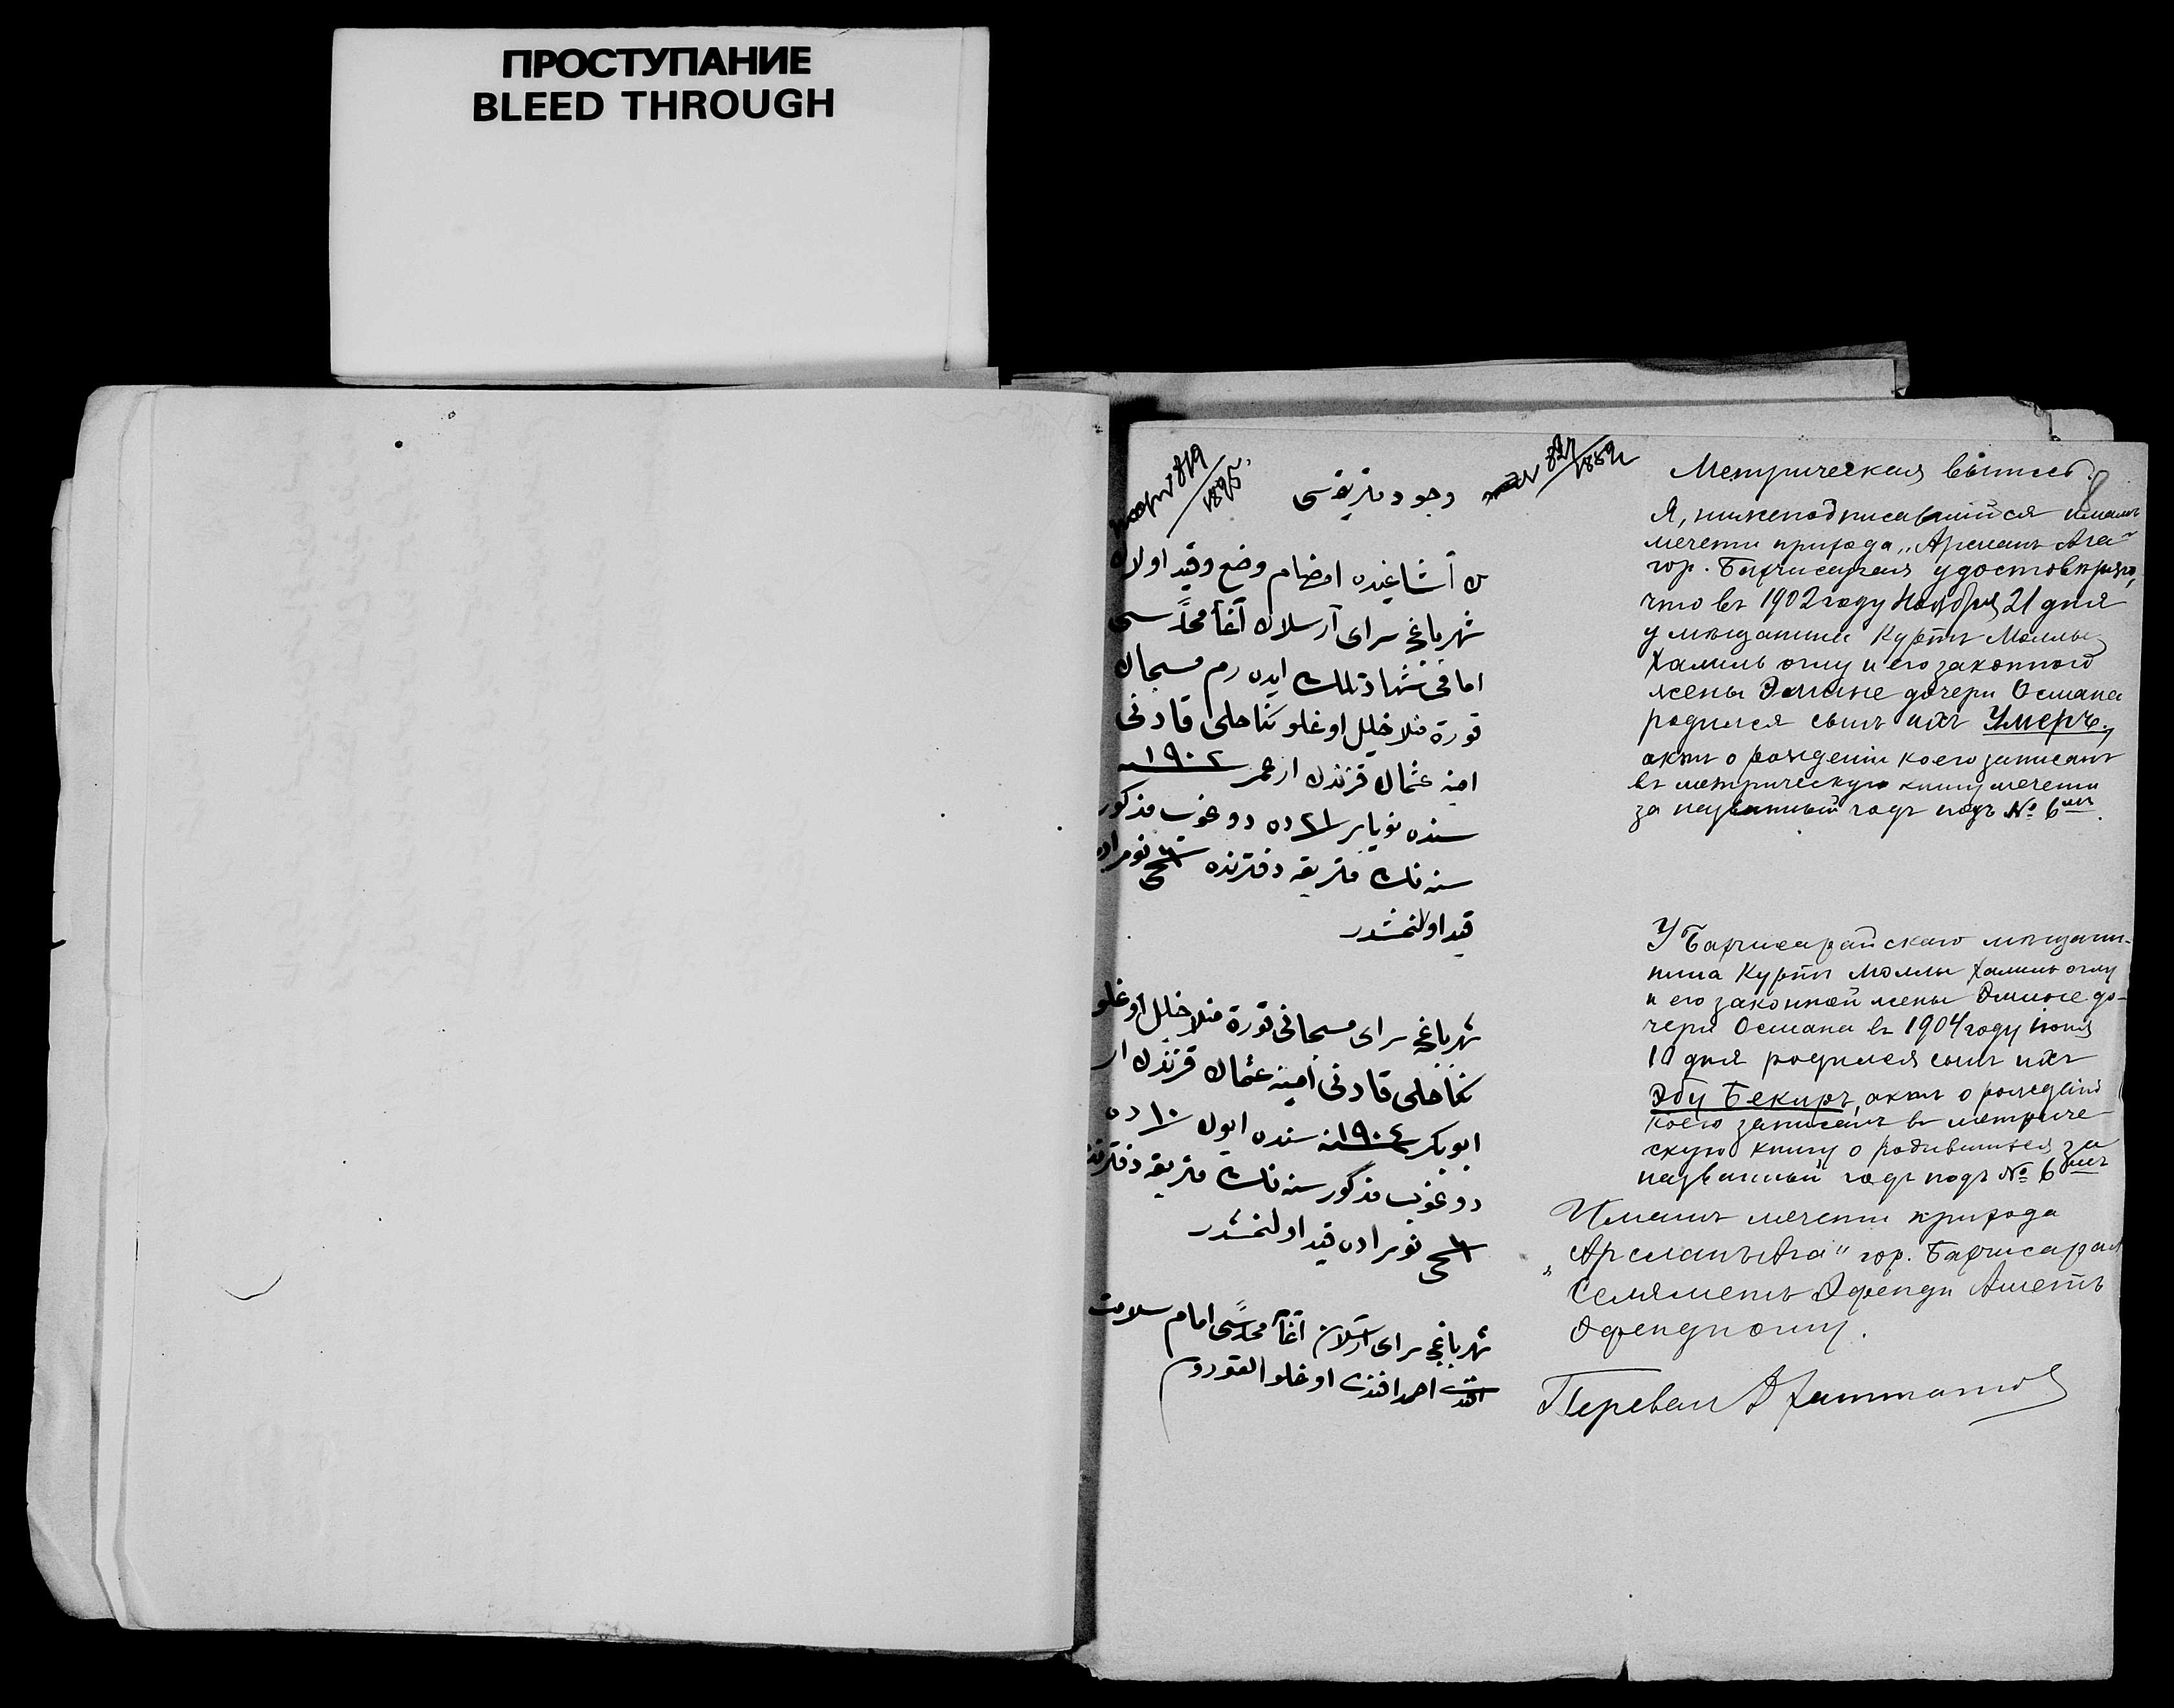 ПРОСТУПАНИЕ
BLEED THROUGH
819
1895
وجود متریقه سی
آشاغیده امضام وضع وقید اولان
شهر باغچه سرای آرسلان آغا محله سی
امامی شهادتلك ایدرم مسچان
قورة منلا خلیل اوغلو نكاحلی قادنی
امینه عثمان قزندن ار عمر ١٩٠٢
سنده نویابر ٢١ ده دوغوب مذكور
سنه نك متریقه دفترنده ٦ نجی نومراده
قید اولنمشدر
شهر باغچه سرای مسچانی قورة منلا خلیل اوغلو
نكاحلی قادنی امینه عثمان قزندن ار
ابو بكر ١٩٠٤ سنده ایون ١٠ ده
دوغوب مذكور سنه نك متریقه دفترنده
٦ نجی نومراده قید اولنمشدر
شهر باغچه سرای آرسلان آغا محله سی امام سلامت
افندی احمد افندی اوغلو القوردوم
Метрическая выпись
8
Я, нижеподписавшийся имамъ
мечети прихода „Арсланъ Ага"
гор. Бахчисарая удостовѣряю,
что въ 1902 году Ноября 21 дня
у мѣщанина Куртъ Моллы
Халиль оглу и его законной
жены Эмине дочери Османа
родился сынъ ихъ Умеръ,
актъ о рожденіи коего записанъ
въ метрическую книгу мечети
за названный годъ подъ № 6мъ.
У Бахчисарайскаго мѣщани-
нина Куртъ Моллы Халиль оглу
и его законной жены Эмине до-
чери Османа въ 1904 году іюня
10 дня родился сынъ ихъ
Эбу Бекиръ, актъ о рожденіи
коего записанъ въ метриче-
скую книгу о родившихся за
названный годъ подъ № 6мъ
Имамъ мечети прихода
„Арсланъ Ага" гор. Бахчисарая
Селяметъ Эфенди Аметъ
Эфенди оглу.
Перевелъ